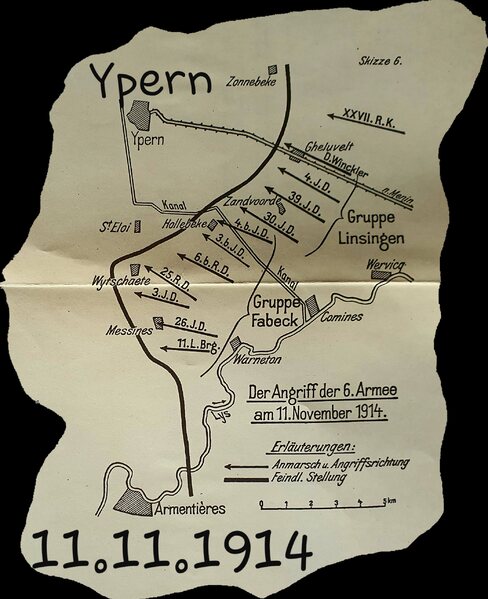 Ypern
Zonnebeke
Skizze 6.
XXVII. R.K.
Ypern
Gheluvelt
D.Winckler
4.J.D.
n. Menin
39.J.D.
Zandvoorde
Kanal
30.J.D.
Gruppe
Linsingen
St Eloi
Hollebeke
4.b.J.D.
3.b.J.D.
6.b.R.D.
Kanal
Wervicq
Wytschaete
25.R.D.
3.J.D.
Gruppe
Fabeck
Comines
Messines
26.J.D.
11.L.Brg.
Warneton
Der Angriff der 6. Armee
am 11. November 1914.
Lys
Erläuterungen:
Anmarsch u. Angriffsrichtung
Feindl. Stellung
0 1 2 3 4 5 km
Armentières
11.11.1914